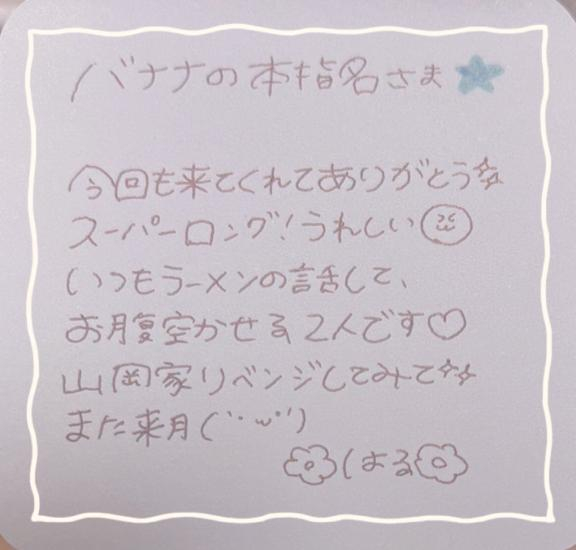 バナナの本指名さま
今回も来てくれてありがとう
スーパーロング!うれしい
いつもラーメンの話して、
お腹空かせる2人です♡
山岡家リベンジしてみて
また来月(´・ω・`)
はる